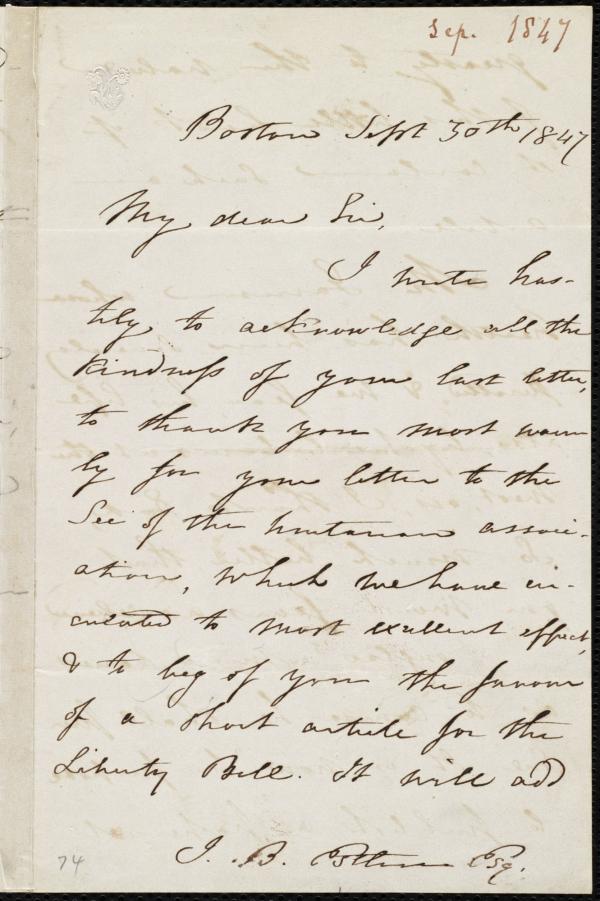 Sep. 1847
Boston Sept 30th 1847
My dear Sir,
I write has-
tily, to acknowledge all the
kindness of your last letter,
to thank you most warm
ly for your letter to the
Sec of the Unitarian associ-
ation, which we have cir-
culated to most excellent effect,
& to beg of you the favour
of a short article for the
Liberty Bell. It will add
J. B. Estlin Esq.
74